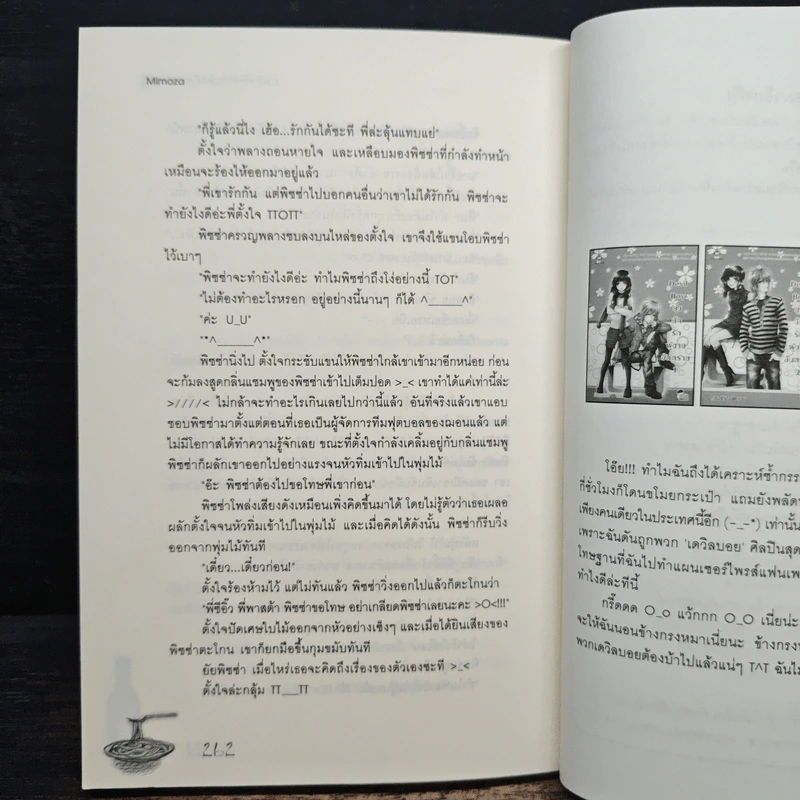 Mimoza
"ก็รู้แล้วนี่ไง เฮ้อ...รักกันได้ซะที พี่ล่ะลุ้นแทบแย่"
ตั้งใจว่าพลางถอนหายใจ และเหลือบมองพิซซ่าที่กำลังทำหน้า
เหมือนจะร้องไห้ออกมาอยู่แล้ว
"พี่เขารักกัน แต่พิซซ่าไปบอกคนอื่นว่าเขาไม่ได้รักกัน พิซซ่าจะ
ทำยังไงดีอ่ะพี่ตั้งใจ TTOTT"
พิซซ่าครวญพลางซบลงบนไหล่ของตั้งใจ เขาจึงใช้แขนโอบพิซซ่า
ไว้เบาๆ
"พิซซ่าจะทำยังไงดีอ่ะ ทำไมพิซซ่าถึงโง่อย่างนี้ TOT"
"ไม่ต้องทำอะไรหรอก อยู่อย่างนี้นานๆ ก็ได้ ^_____^"
"ค่ะ U_U"
"*^______^*"
พิซซ่านิ่งไป ตั้งใจกระชับแขนให้พิซซ่าใกล้เขาเข้ามาอีกหน่อย ก่อน
จะก้มลงสูดกลิ่นแชมพูของพิซซ่าเข้าไปเต็มปอด >_< เขาทำได้แค่เท่านี้ล่ะ
>////< ไม่กล้าจะทำอะไรเกินเลยไปกว่านี้แล้ว อันที่จริงแล้วเขาแอบ
ชอบพิซซ่ามาตั้งแต่ตอนที่เธอเป็นผู้จัดการทีมฟุตบอลของฌอนแล้ว แต่
ไม่มีโอกาสได้ทำความรู้จักเลย ขณะที่ตั้งใจกำลังเคลิ้มอยู่กับกลิ่นแชมพู
พิซซ่าก็ผลักเขาออกไปอย่างแรงจนหัวทิ่มเข้าไปในพุ่มไม้
"อ๊ะ พิซซ่าต้องไปขอโทษพี่เขาก่อน"
พิซซ่าโพล่งเสียงดังเหมือนเพิ่งคิดขึ้นมาได้ โดยไม่รู้ตัวว่าเธอเผลอ
ผลักตั้งใจจนหัวทิ่มเข้าไปในพุ่มไม้ และเมื่อคิดได้ดังนั้น พิซซ่าก็รีบวิ่ง
ออกจากพุ่มไม้ทันที
"เดี๋ยว...เดี๋ยวก่อน!"
ตั้งใจร้องห้ามไว้ แต่ไม่ทันแล้ว พิซซ่าวิ่งออกไปแล้วก็ตะโกนว่า
"พี่ซีอิ๊ว พี่พาสต้า พิซซ่าขอโทษ อย่าเกลียดพิซซ่าเลยนะคะ >O<!!!"
ตั้งใจปัดเศษใบไม้ออกจากหัวอย่างเซ็งๆ และเมื่อได้ยินเสียงของ
พิซซ่าตะโกน เขาก็ยกมือขึ้นกุมขมับทันที
ยัยพิซซ่า เมื่อไหร่เธอจะคิดถึงเรื่องของตัวเองซะที >_<
ตั้งใจล่ะกลุ้ม TT___TT
212
โอ๊ย!!! ทำไมฉันถึงได้เคราะห์ซ้ำกรร
กี่ชั่วโมงก็โดนขโมยกระเป๋า แถมยังพลัดห
เพียงคนเดียวในประเทศนี้อีก (-_-*) เท่านั้น
เพราะฉันดันถูกพวก 'เดวิลบอย' ศิลปินสุด
โทษฐานที่ฉันไปทำแผนเซอร์ไพรส์แฟนเพ
ทำไงดีล่ะทีนี้
กรี๊ดดด O_o แว้กกก O_O เนี่ยน่ะ
จะให้ฉันนอนข้างกรงหมาเนี่ยนะ ข้างกรงห
พวกเดวิลบอยต้องบ้าไปแล้วแน่ๆ T^T ฉันไม่